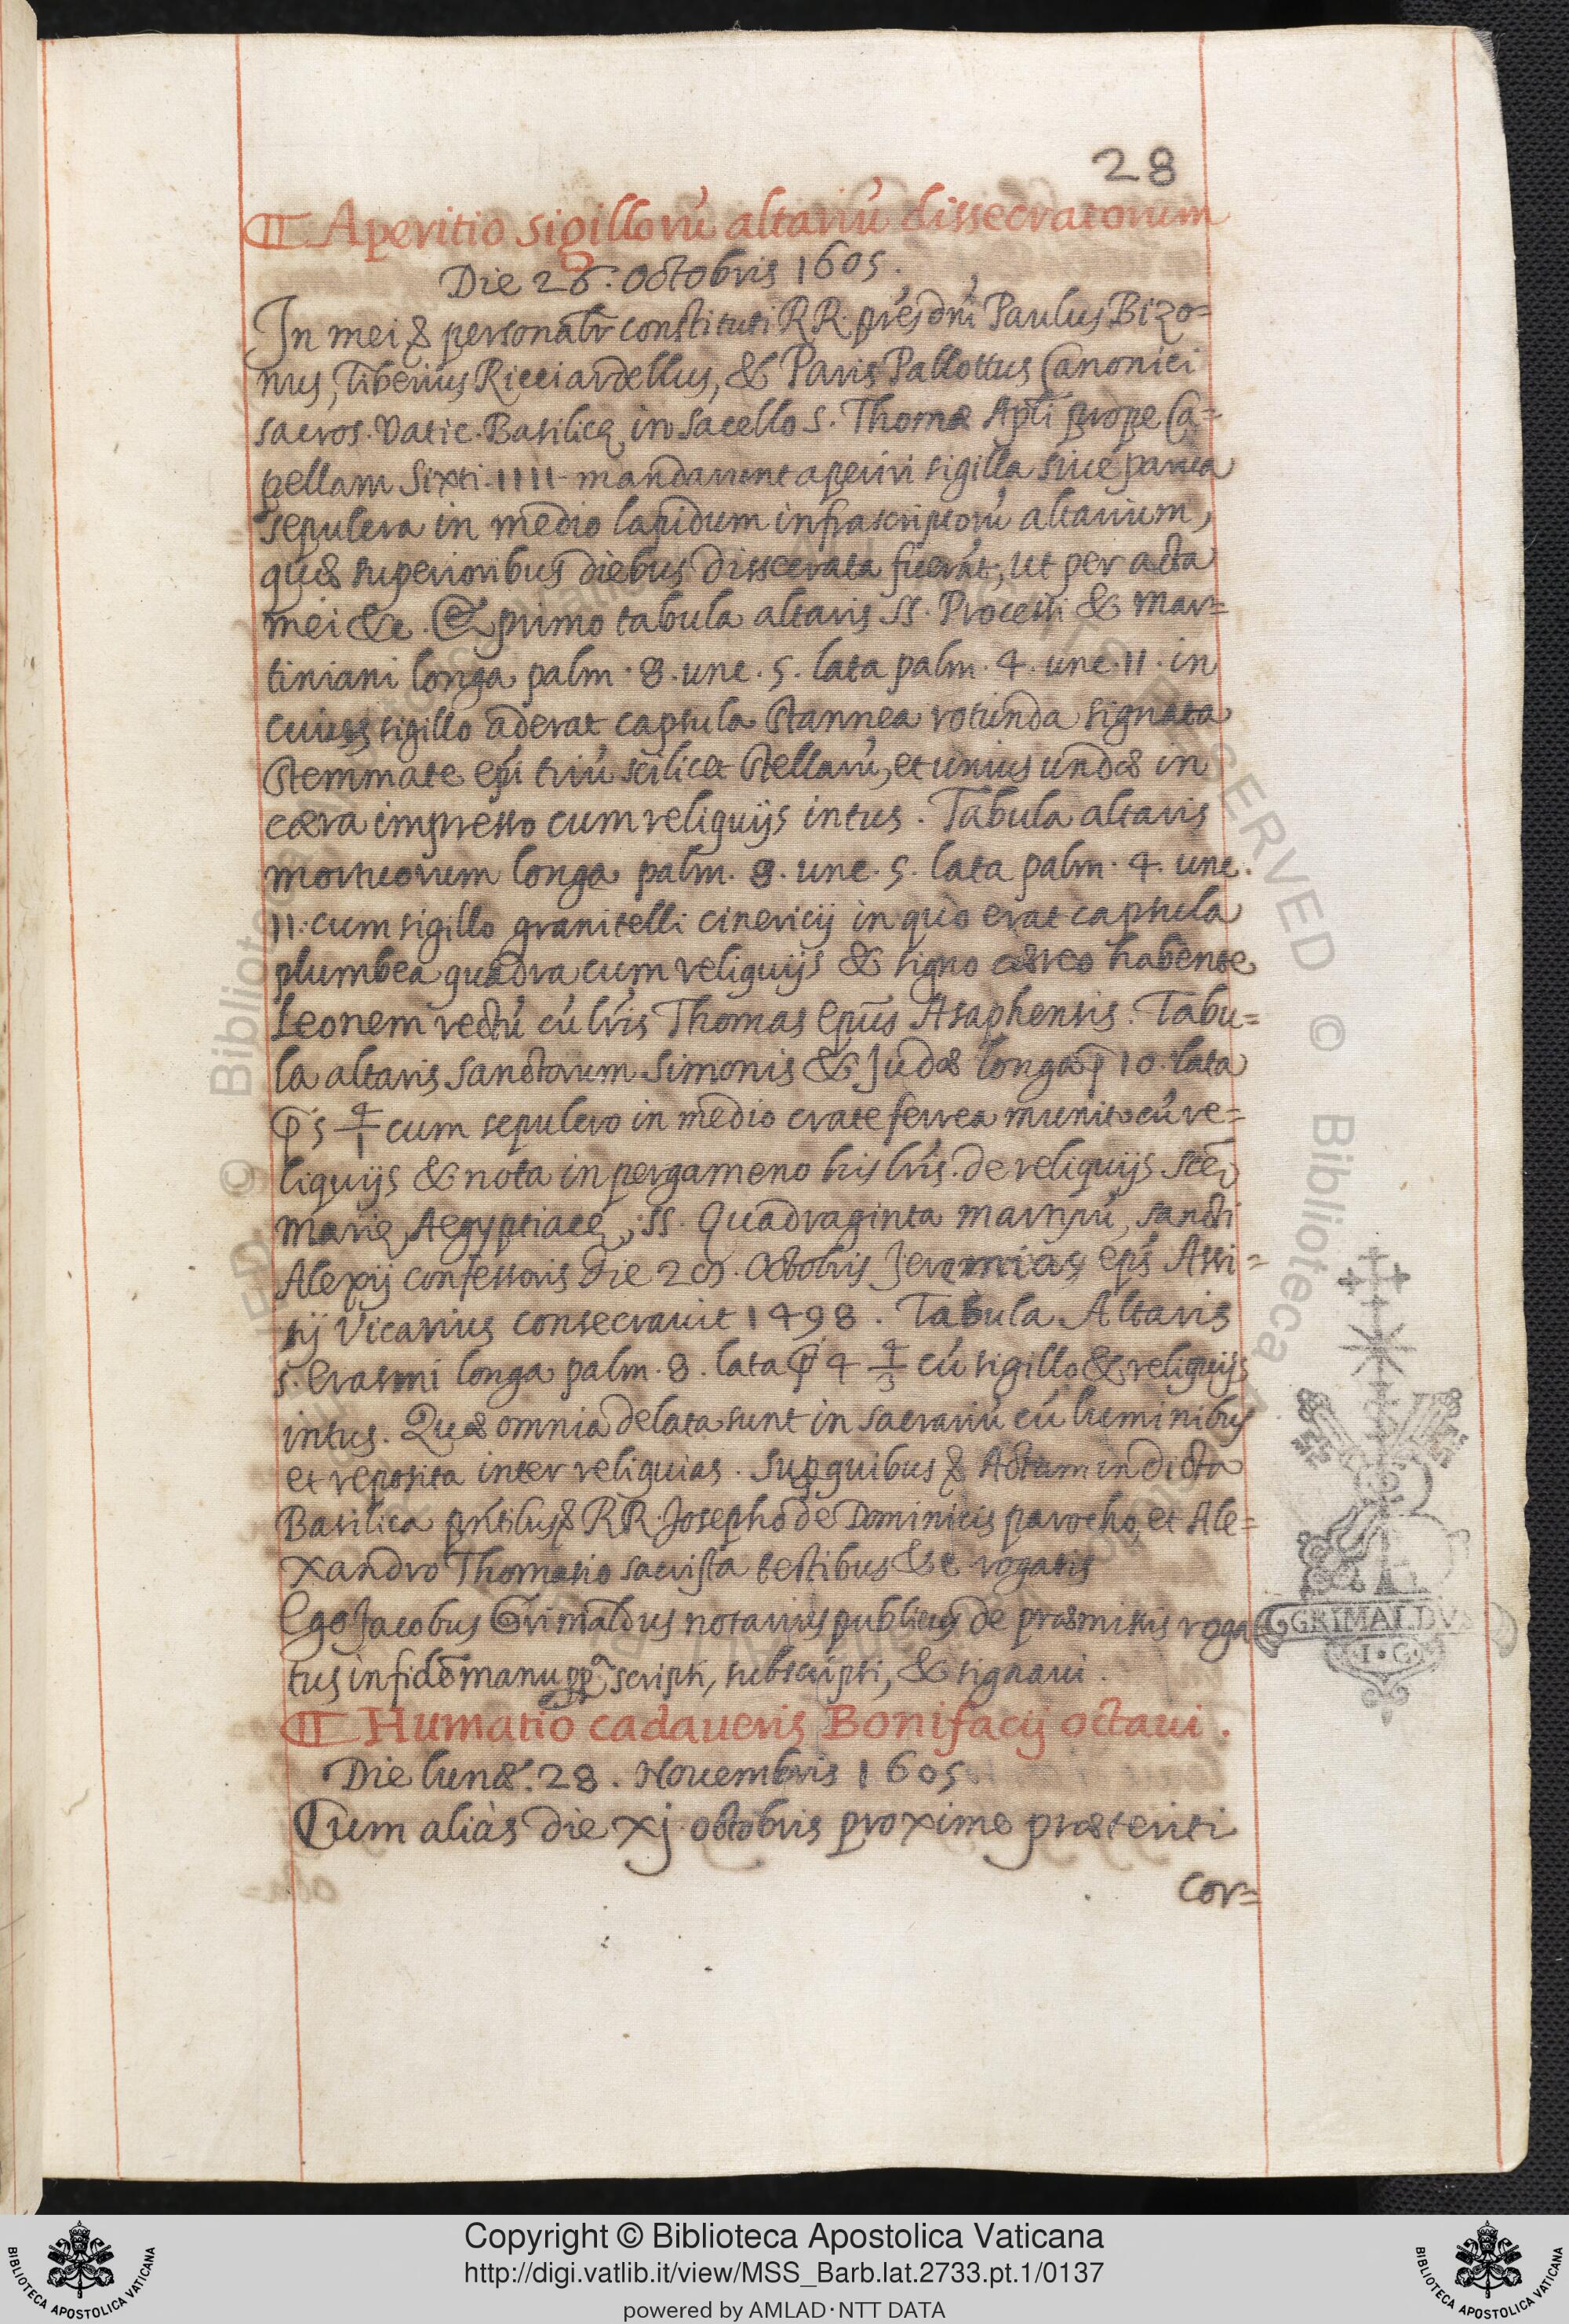 28
Aperitio sigillorũ altariũ dissecratorum
Die 26. Octobris 1605.
In mei & personalr constituti RR. pres dni Paulus Bizo=
nus, Tiberius Ricciardellus, & Paris Pallottus Canonici
sacros. Vatic. Basilicę in sacello S. Thomæ Apli prope Ca=
pellam Sixti IIII mandarunt aperiri sigilla siue parua
sepulcra in medio lapidum infrascriptorũ altarium,
quæ superioribus diebus dissecrata fuerãt, ut per acta
mei &c. Et primo tabula altaris SS. Processi & Mar=
tiniani longa palm. 8. unc. 5. lata palm. 4. unc. 11. in
cuius sigillo aderat capsula stannea rotunda signata
stemmate epi triũ scilicet stellarũ, et unius undæ in
cæra impresso cum reliquijs intus. Tabula altaris
mortuorum longa palm. 8. unc. 5. lata palm. 4. unc.
11. cum sigillo granitelli cinericij in quo erat capsula
plumbea quadra cum reliquijs & signo æreo habente
Leonem rectũ cũ lris Thomas Epũs Asaphensis. Tabu=
la altaris sanctorum Simonis & Judæ longa p 10. lata
p 5 4/1 cum sepulcro in medio crate ferrea munito cũ re=
liquijs & nota in pergameno his lris. de reliquijs scẽ
Marię Aegyptiacę, SS. Quadraginta martyrũ, sancti
Alexij confessoris die Octobris Jeremias eps Assi=
sij Vicarius consecrauit 1498. Tabula Altaris
S. Erasmi longa palm. 8. lata p 4 4/3 cũ sigillo & reliquijs
intus. Quæ omnia delata sunt in sacrariũ cũ luminibus
et reposita inter reliquias. Sup quibus & Actum in dicta
Basilica prñtibus & RR. Josepho de Dominicis parocho, et Ale=
xandro Thomasio sacrista testibus &c rogatis
Ego Jacobus Grimaldus notarius publicus de præmissis roga
tus in fidẽ manu ppa scripsi, subscripsi, & signaui.
GRIMALDVS
I·G·
Humatio cadaueris Bonifacij octaui.
Die lunæ. 28. Nouembris 1605
Cum aliàs die xj octobris proxime præteriti
cor=
© Biblioteca Apostolica Vaticana
Copyright © Biblioteca Apostolica Vaticana
http://digi.vatlib.it/view/MSS_Barb.lat.2733.pt.1/0137
powered by AMLAD·NTT DATA
BIBLIOTECA APOSTOLICA VATICANA
BIBLIOTECA APOSTOLICA VATICANA